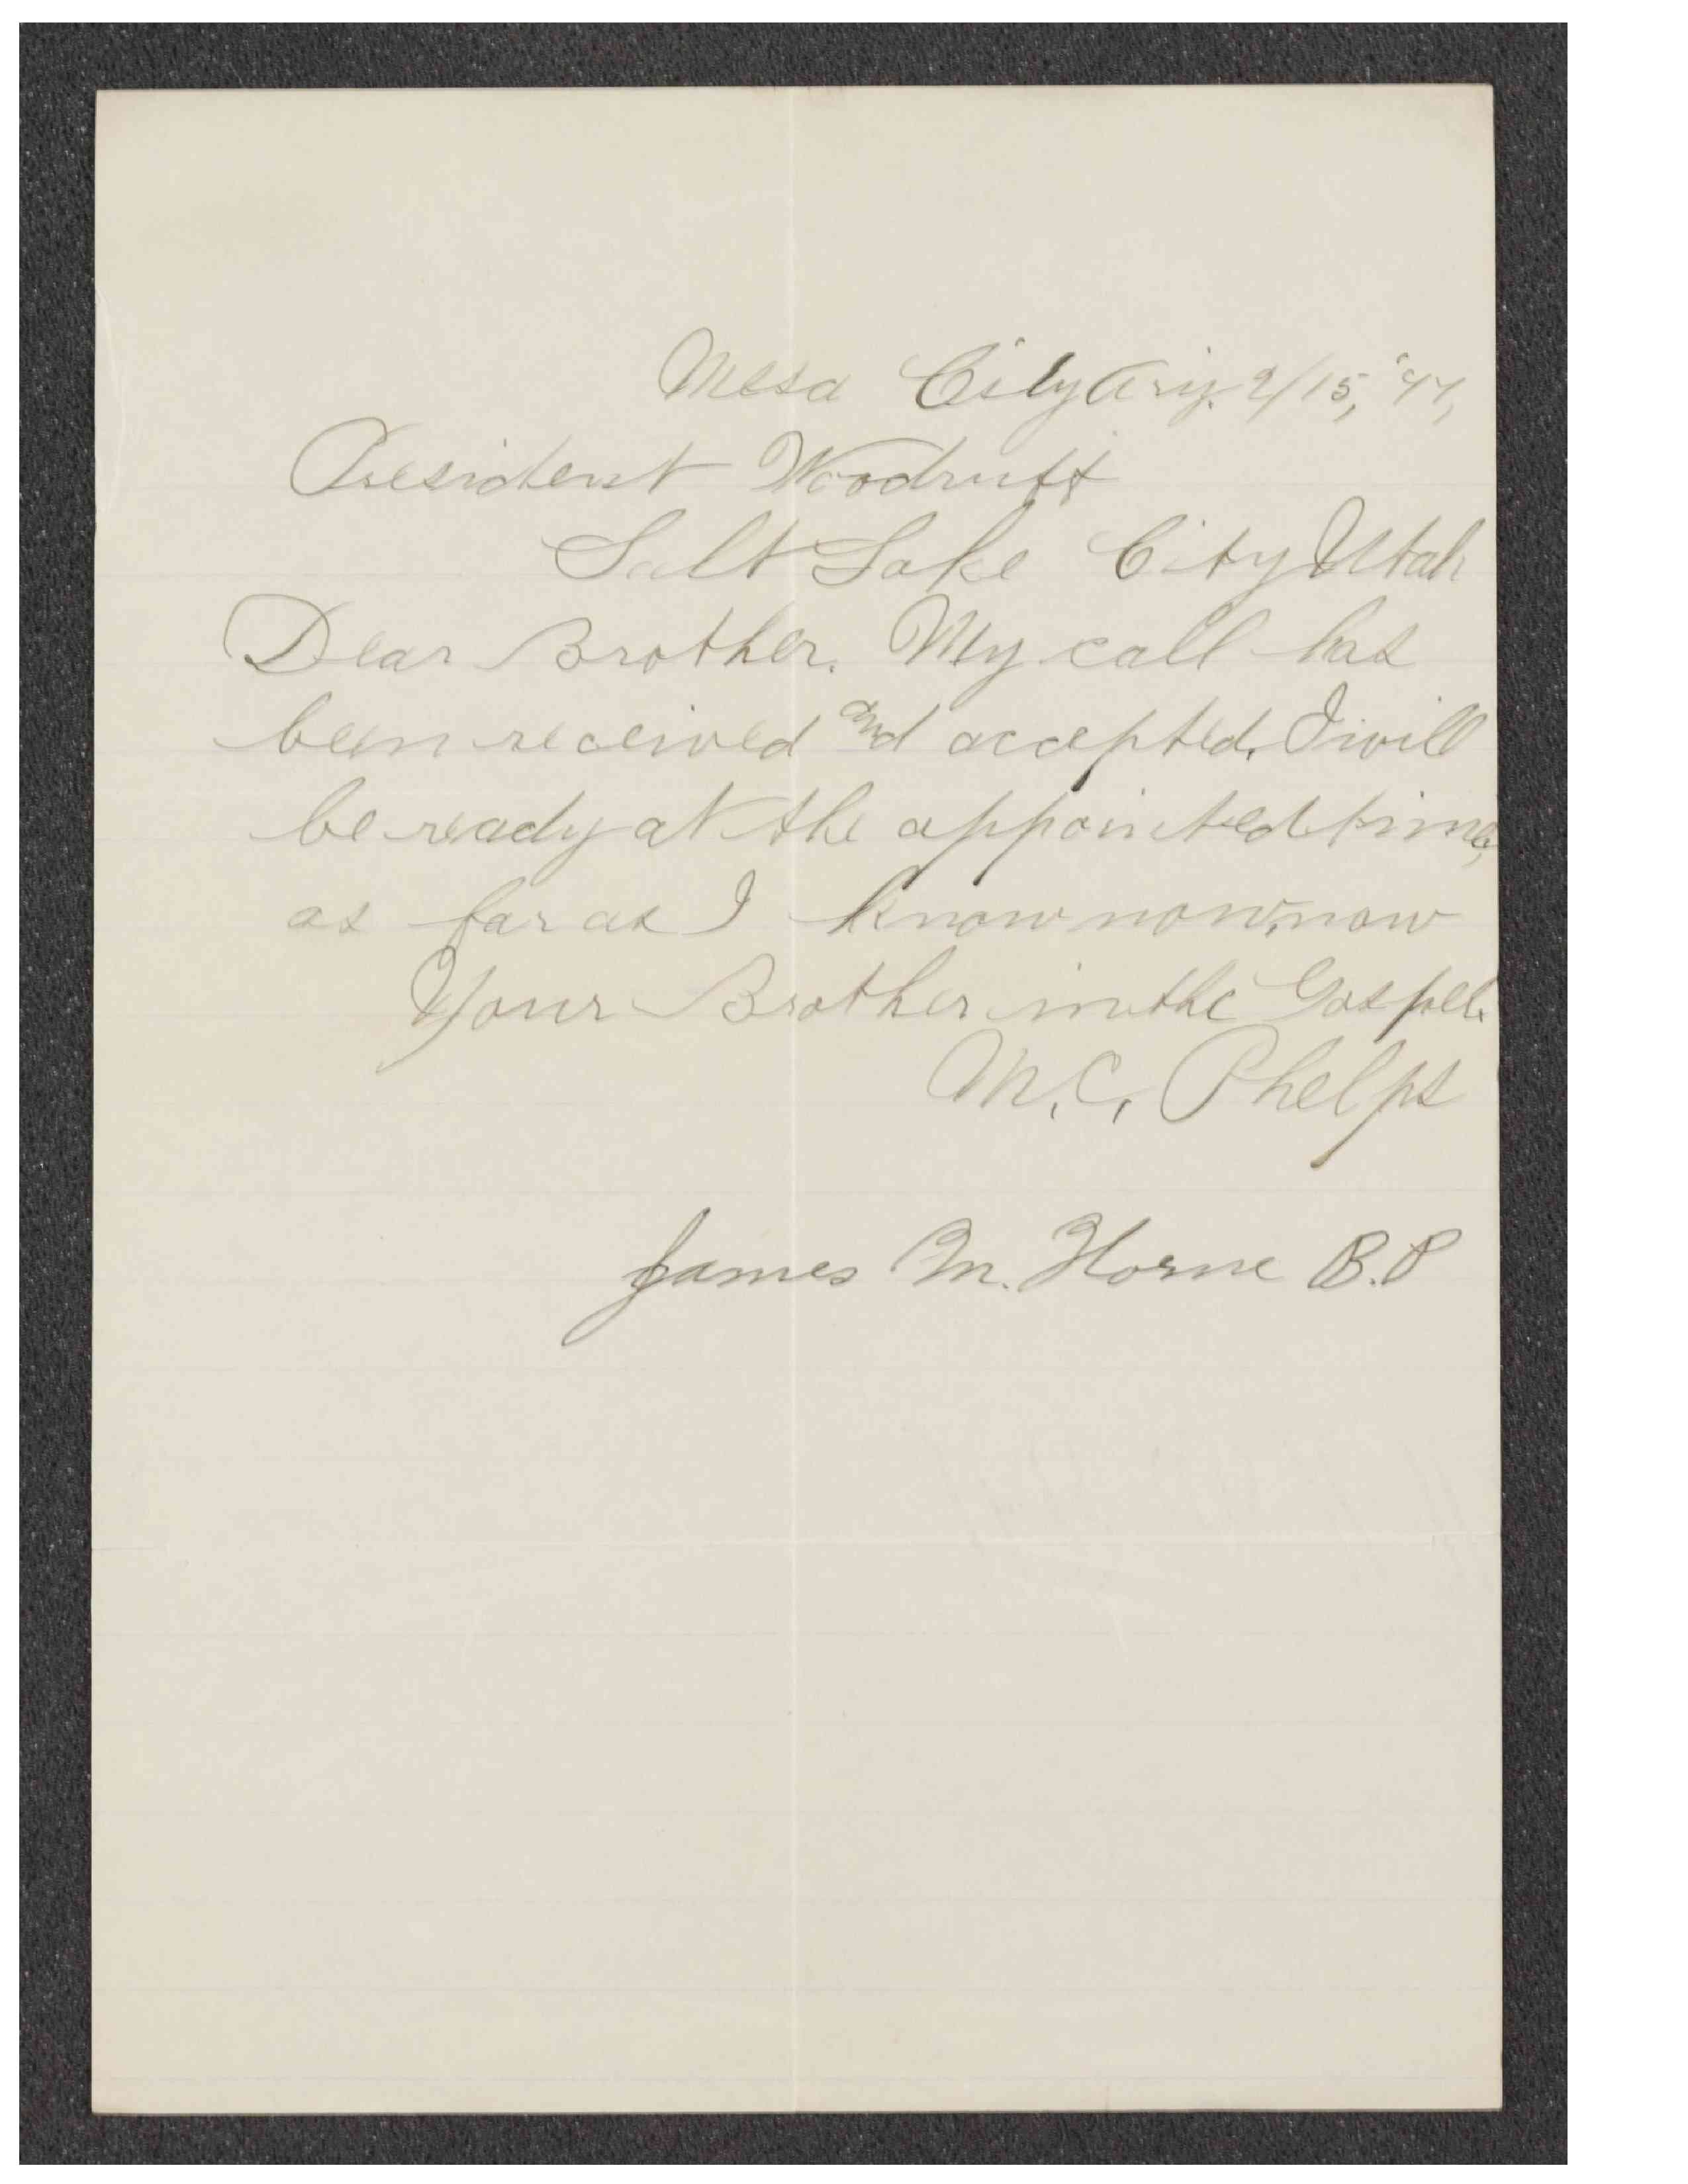 Mesa City Ariz. 2/15, '97,
President Woodruff
Salt Lake City Utah
Dear Brother. My call has
been received and accepted. I will
be ready at the appointed time,
as far as I know now, now
Your Brother in the Gospel.
M. C. Phelps
James M. Horne B.P